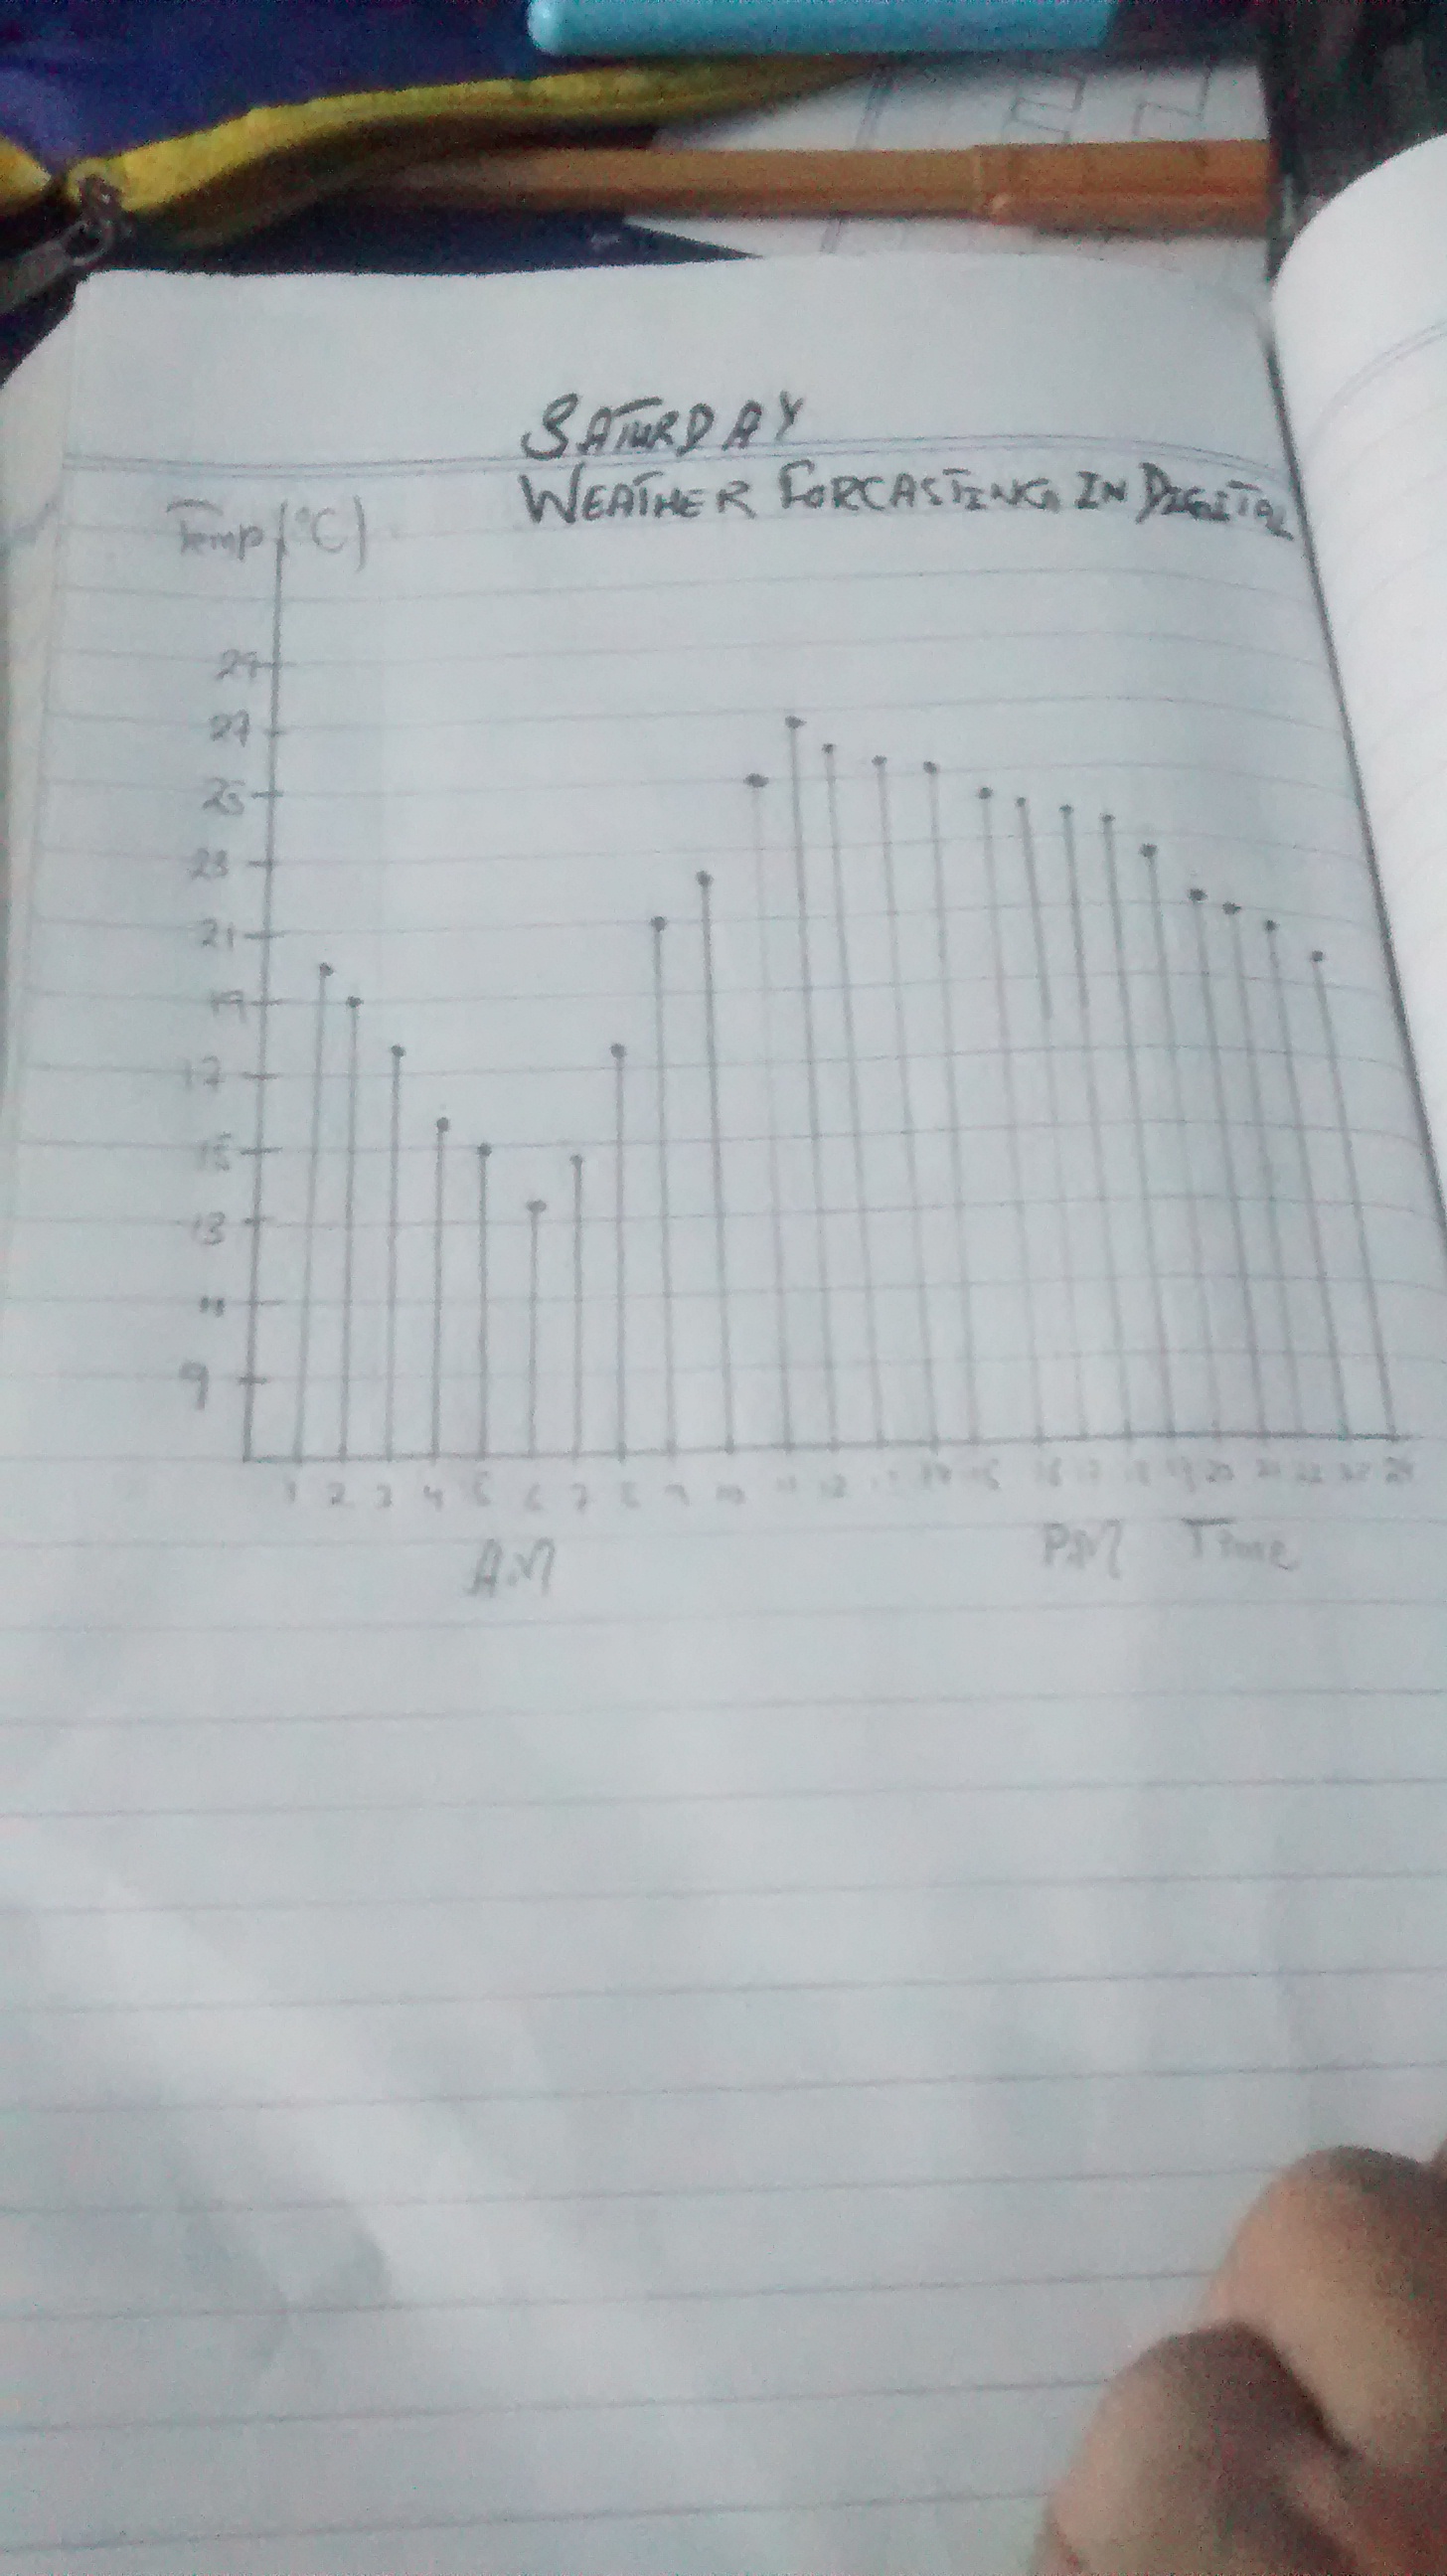 SATURDAY
WEATHER FORCASTING IN DIGITAL
Temp (°C)
29
27
25
23
21
19
17
15
13
11
9
1 2 3 4 5 6 7 8 9 10 11 12 13 14 15 16 17 18 19 20 21 22 23 24
A.M P.M Time